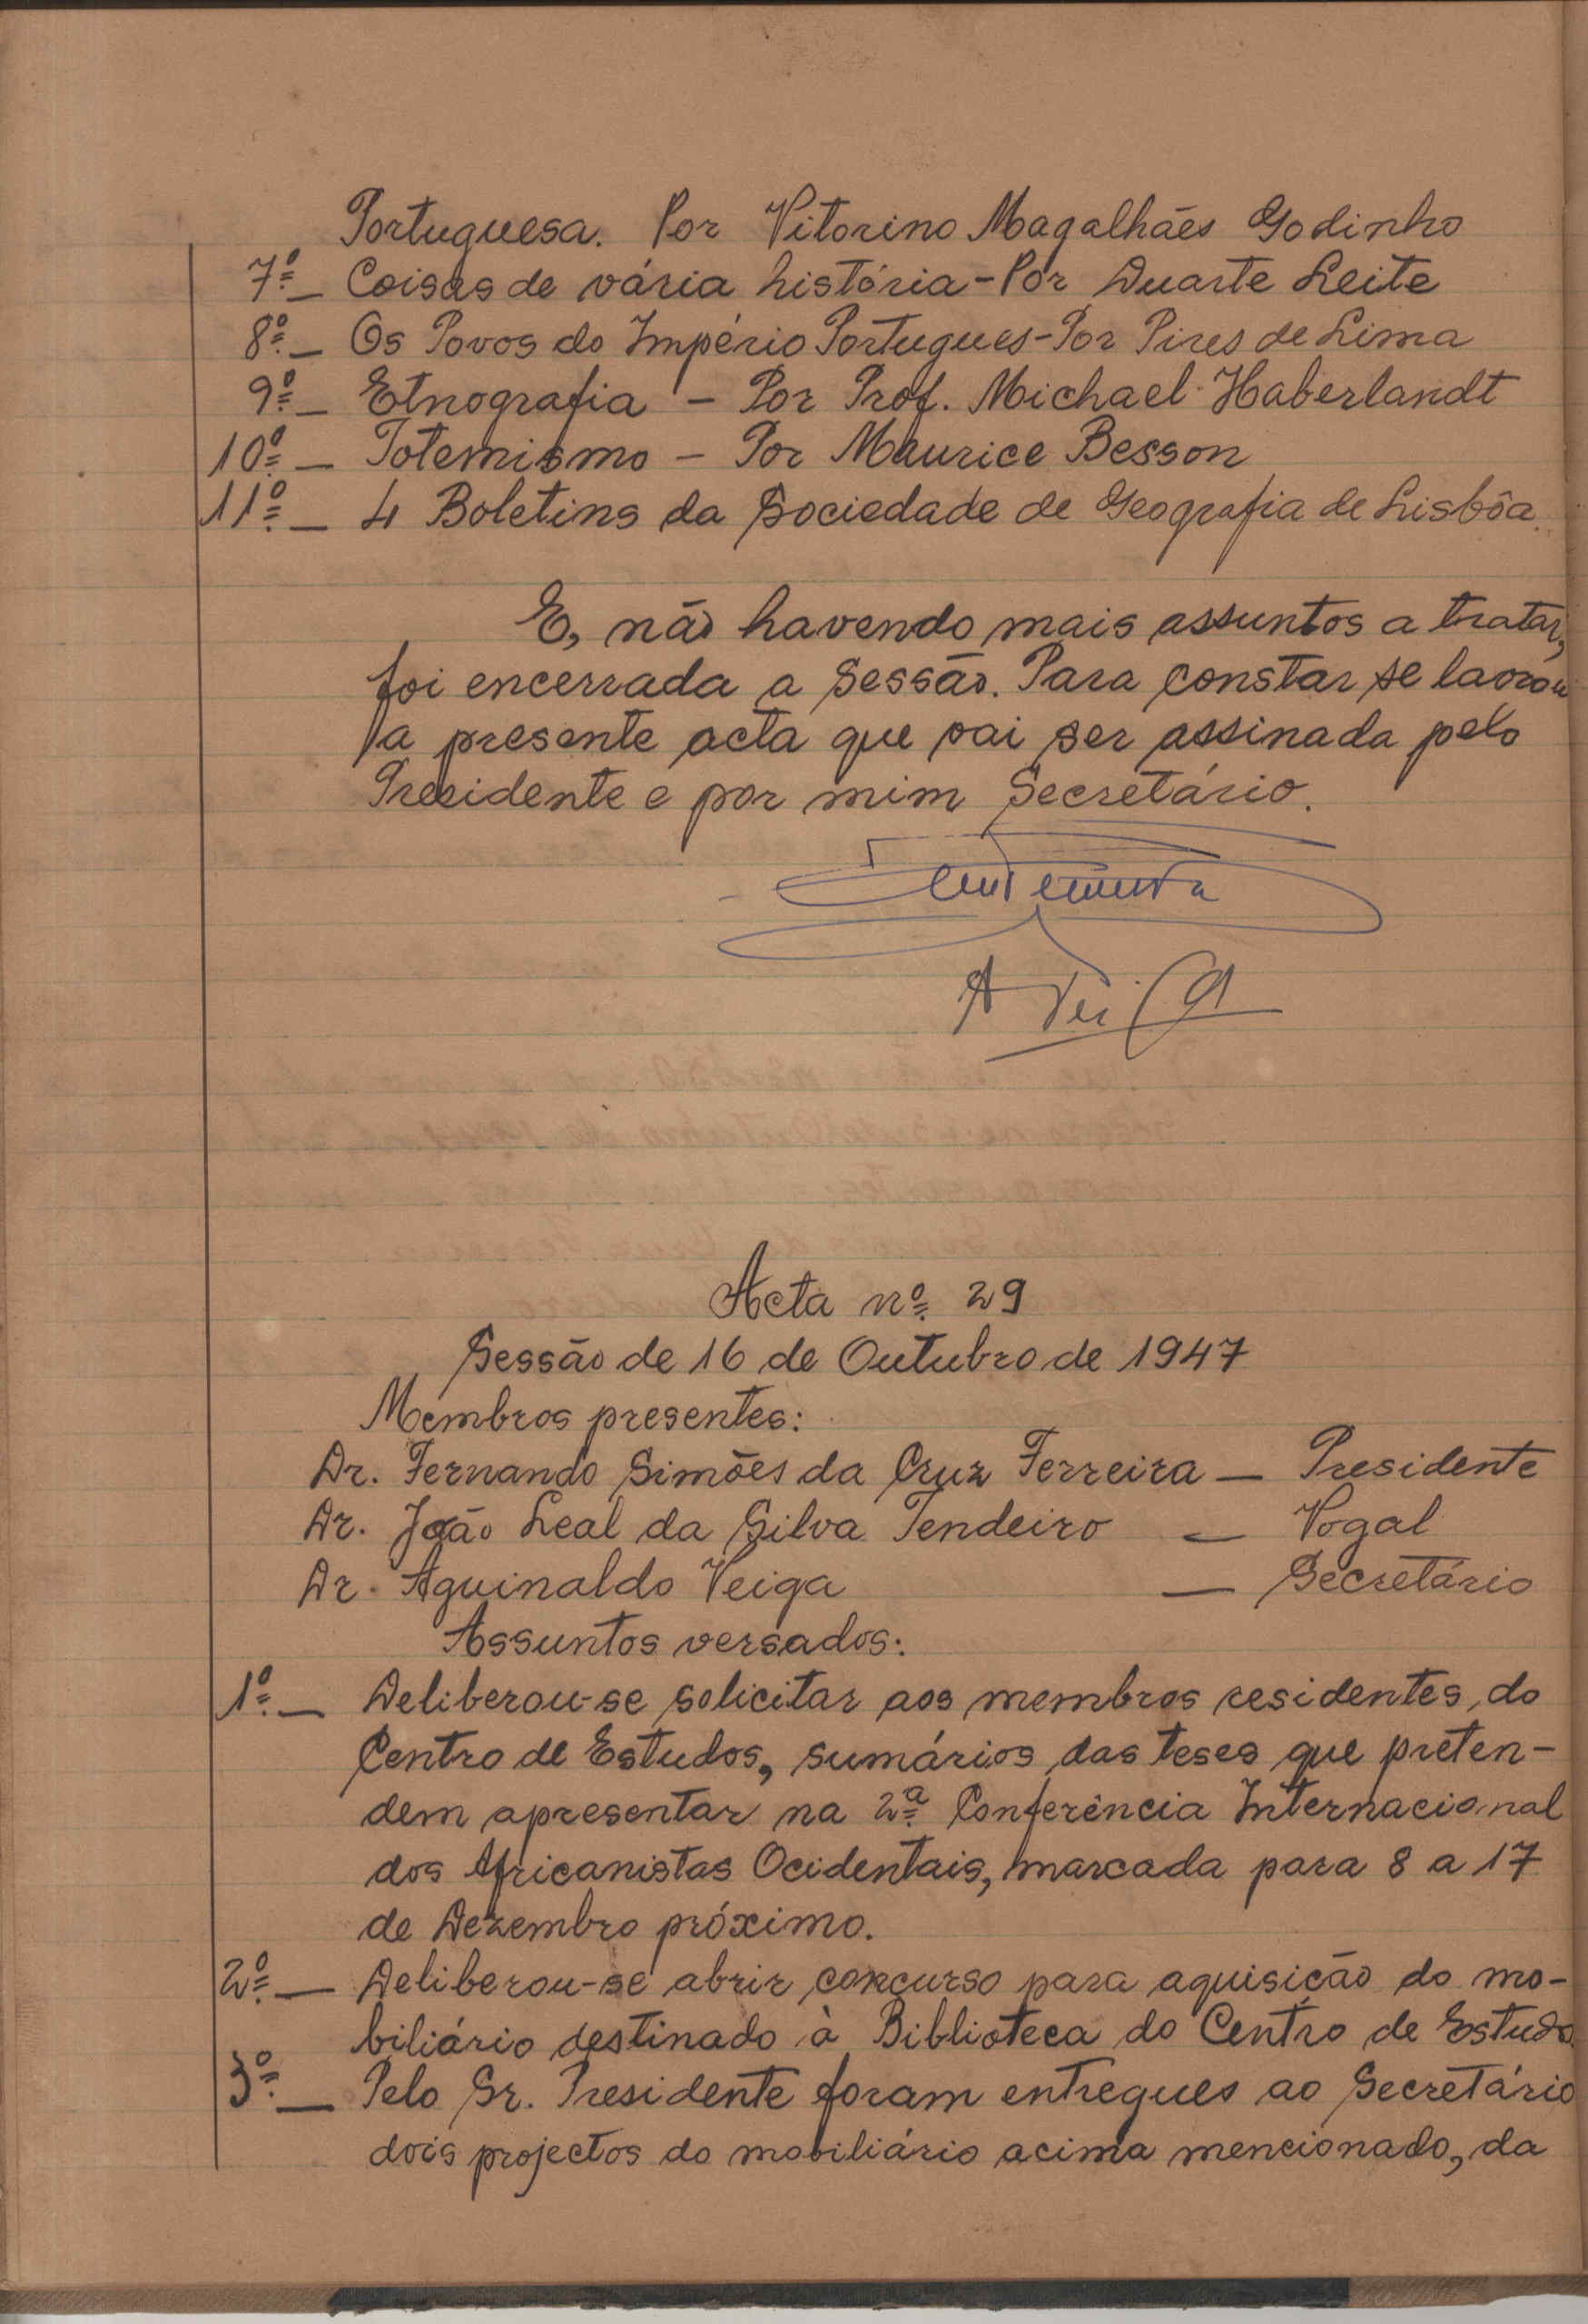 Portuguesa. Por Vitorino Magalhães Godinho
7º - Coisas de vária história - Por Duarte Leite
8º - Os Povos do Império Portugues - Por Pires de Lima
9º - Etnografia - Por Prof. Michael Haberlandt
10º - Totemismo - Por Maurice Besson
11º - 4 Boletins da Sociedade de Geografia de Lisbôa.
E, não havendo mais assuntos a tratar,
foi encerrada a Sessão. Para constar se lavrou
a presente acta que vai ser assinada pelo
Presidente e por mim Secretário.
A Veiga
Acta nº 29
Sessão de 16 de Outubro de 1947
Membros presentes:
Dr. Fernando Simões da Cruz Ferreira - Presidente
Dr. João Leal da Silva Tendeiro - Vogal
Dr. Aguinaldo Veiga - Secretário
Assuntos versados:
1º - Deliberou-se solicitar aos membros residentes, do
Centro de Estudos, sumários das teses que preten-
dem apresentar na 2ª Conferência Internacional
dos Africanistas Ocidentais, marcada para 8 a 17
de Dezembro próximo.
2º - Deliberou-se abrir concurso para aquisição do mo-
biliário destinado à Biblioteca do Centro de Estudo.
3º - Pelo Sr. Presidente foram entregues ao Secretário
dois projectos do mobiliário acima mencionado, da